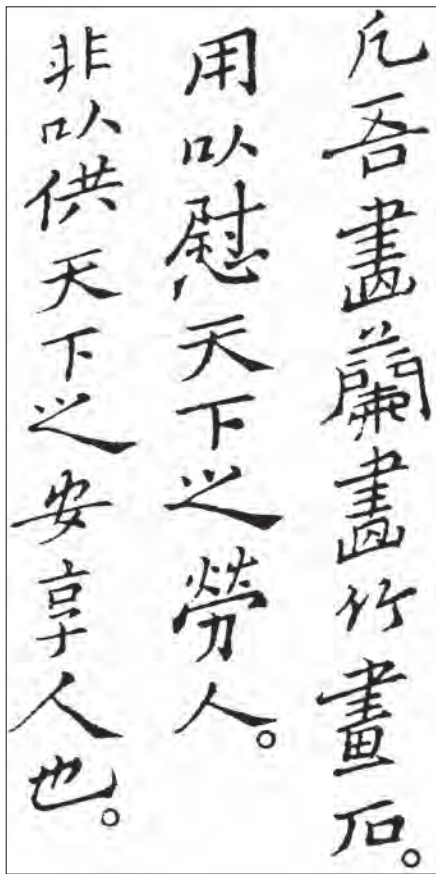 凡吾畫蘭畫竹畫石。
用以慰天下之勞人。
非以供天下之安享人也。